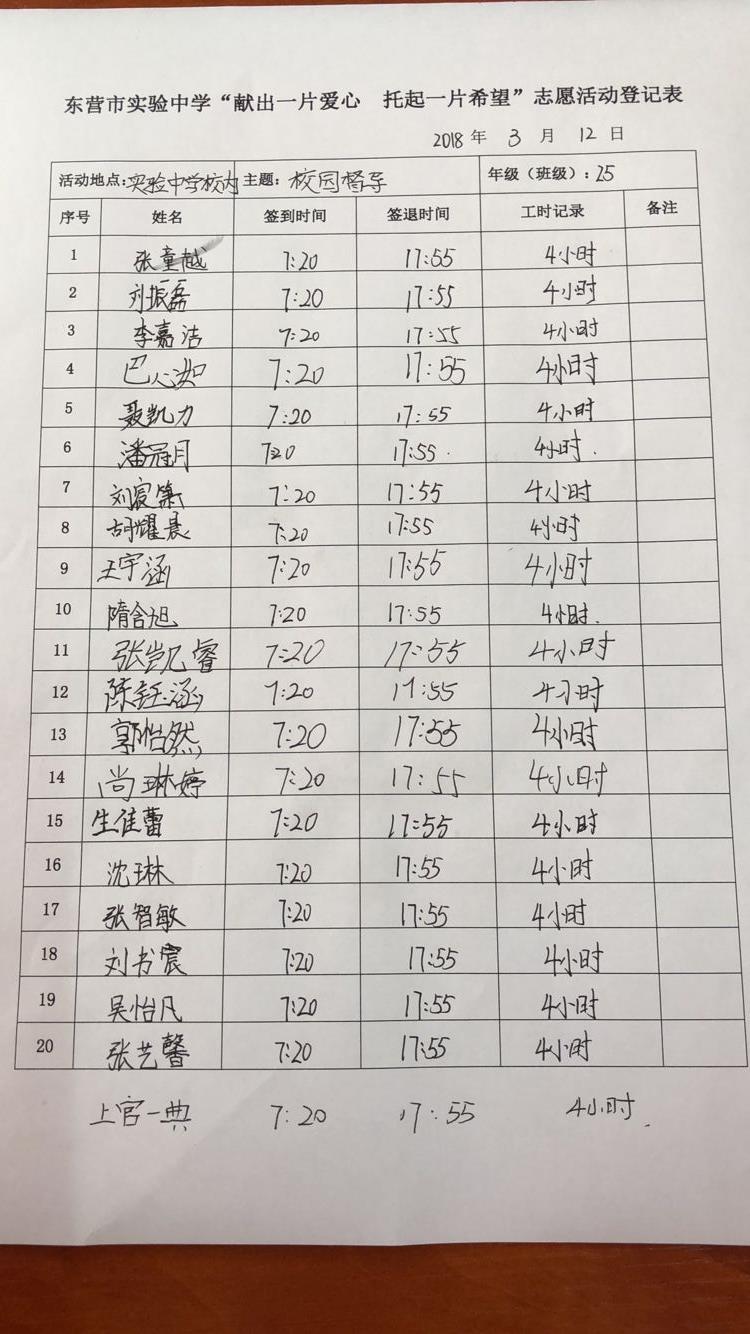 东营市实验中学“献出一片爱心 托起一片希望”志愿活动登记表
2018 年 3 月 12 日
活动地点:实验中学校内 主题: 校园督导 年级（班级）: 25
序号 姓名 签到时间 签退时间 工时记录 备注
1 张童越 7:20 17:55 4小时
2 刘振磊 7:20 17:55 4小时
3 李嘉洁 7:20 17:55 4小时
4 巴心如 7:20 17:55 4小时
5 聂凯力 7:20 17:55 4小时
6 潘冠月 7:20 17:55. 4小时.
7 刘宸 7:20 17:55 4小时
8 胡耀晨 7:20 17:55 4小时
9 王宇涵 7:20 17:55 4小时
10 隋含旭 7:20 17:55 4小时.
11 张凯睿 7:20 17:55 4小时
12 陈钰涵 7:20 17:55 4小时
13 郭怡然 7:20 17:55 4小时
14 尚琳婷 7:20 17:55 4小时
15 生佳蕾 7:20 17:55 4小时
16 沈琳 7:20 17:55 4小时
17 张智敏 7:20 17:55 4小时
18 刘书宸 7:20 17:55 4小时
19 吴怡凡 7:20 17:55 4小时
20 张艺馨 7:20 17:55 4小时
上官一典 7:20 17:55 4小时.